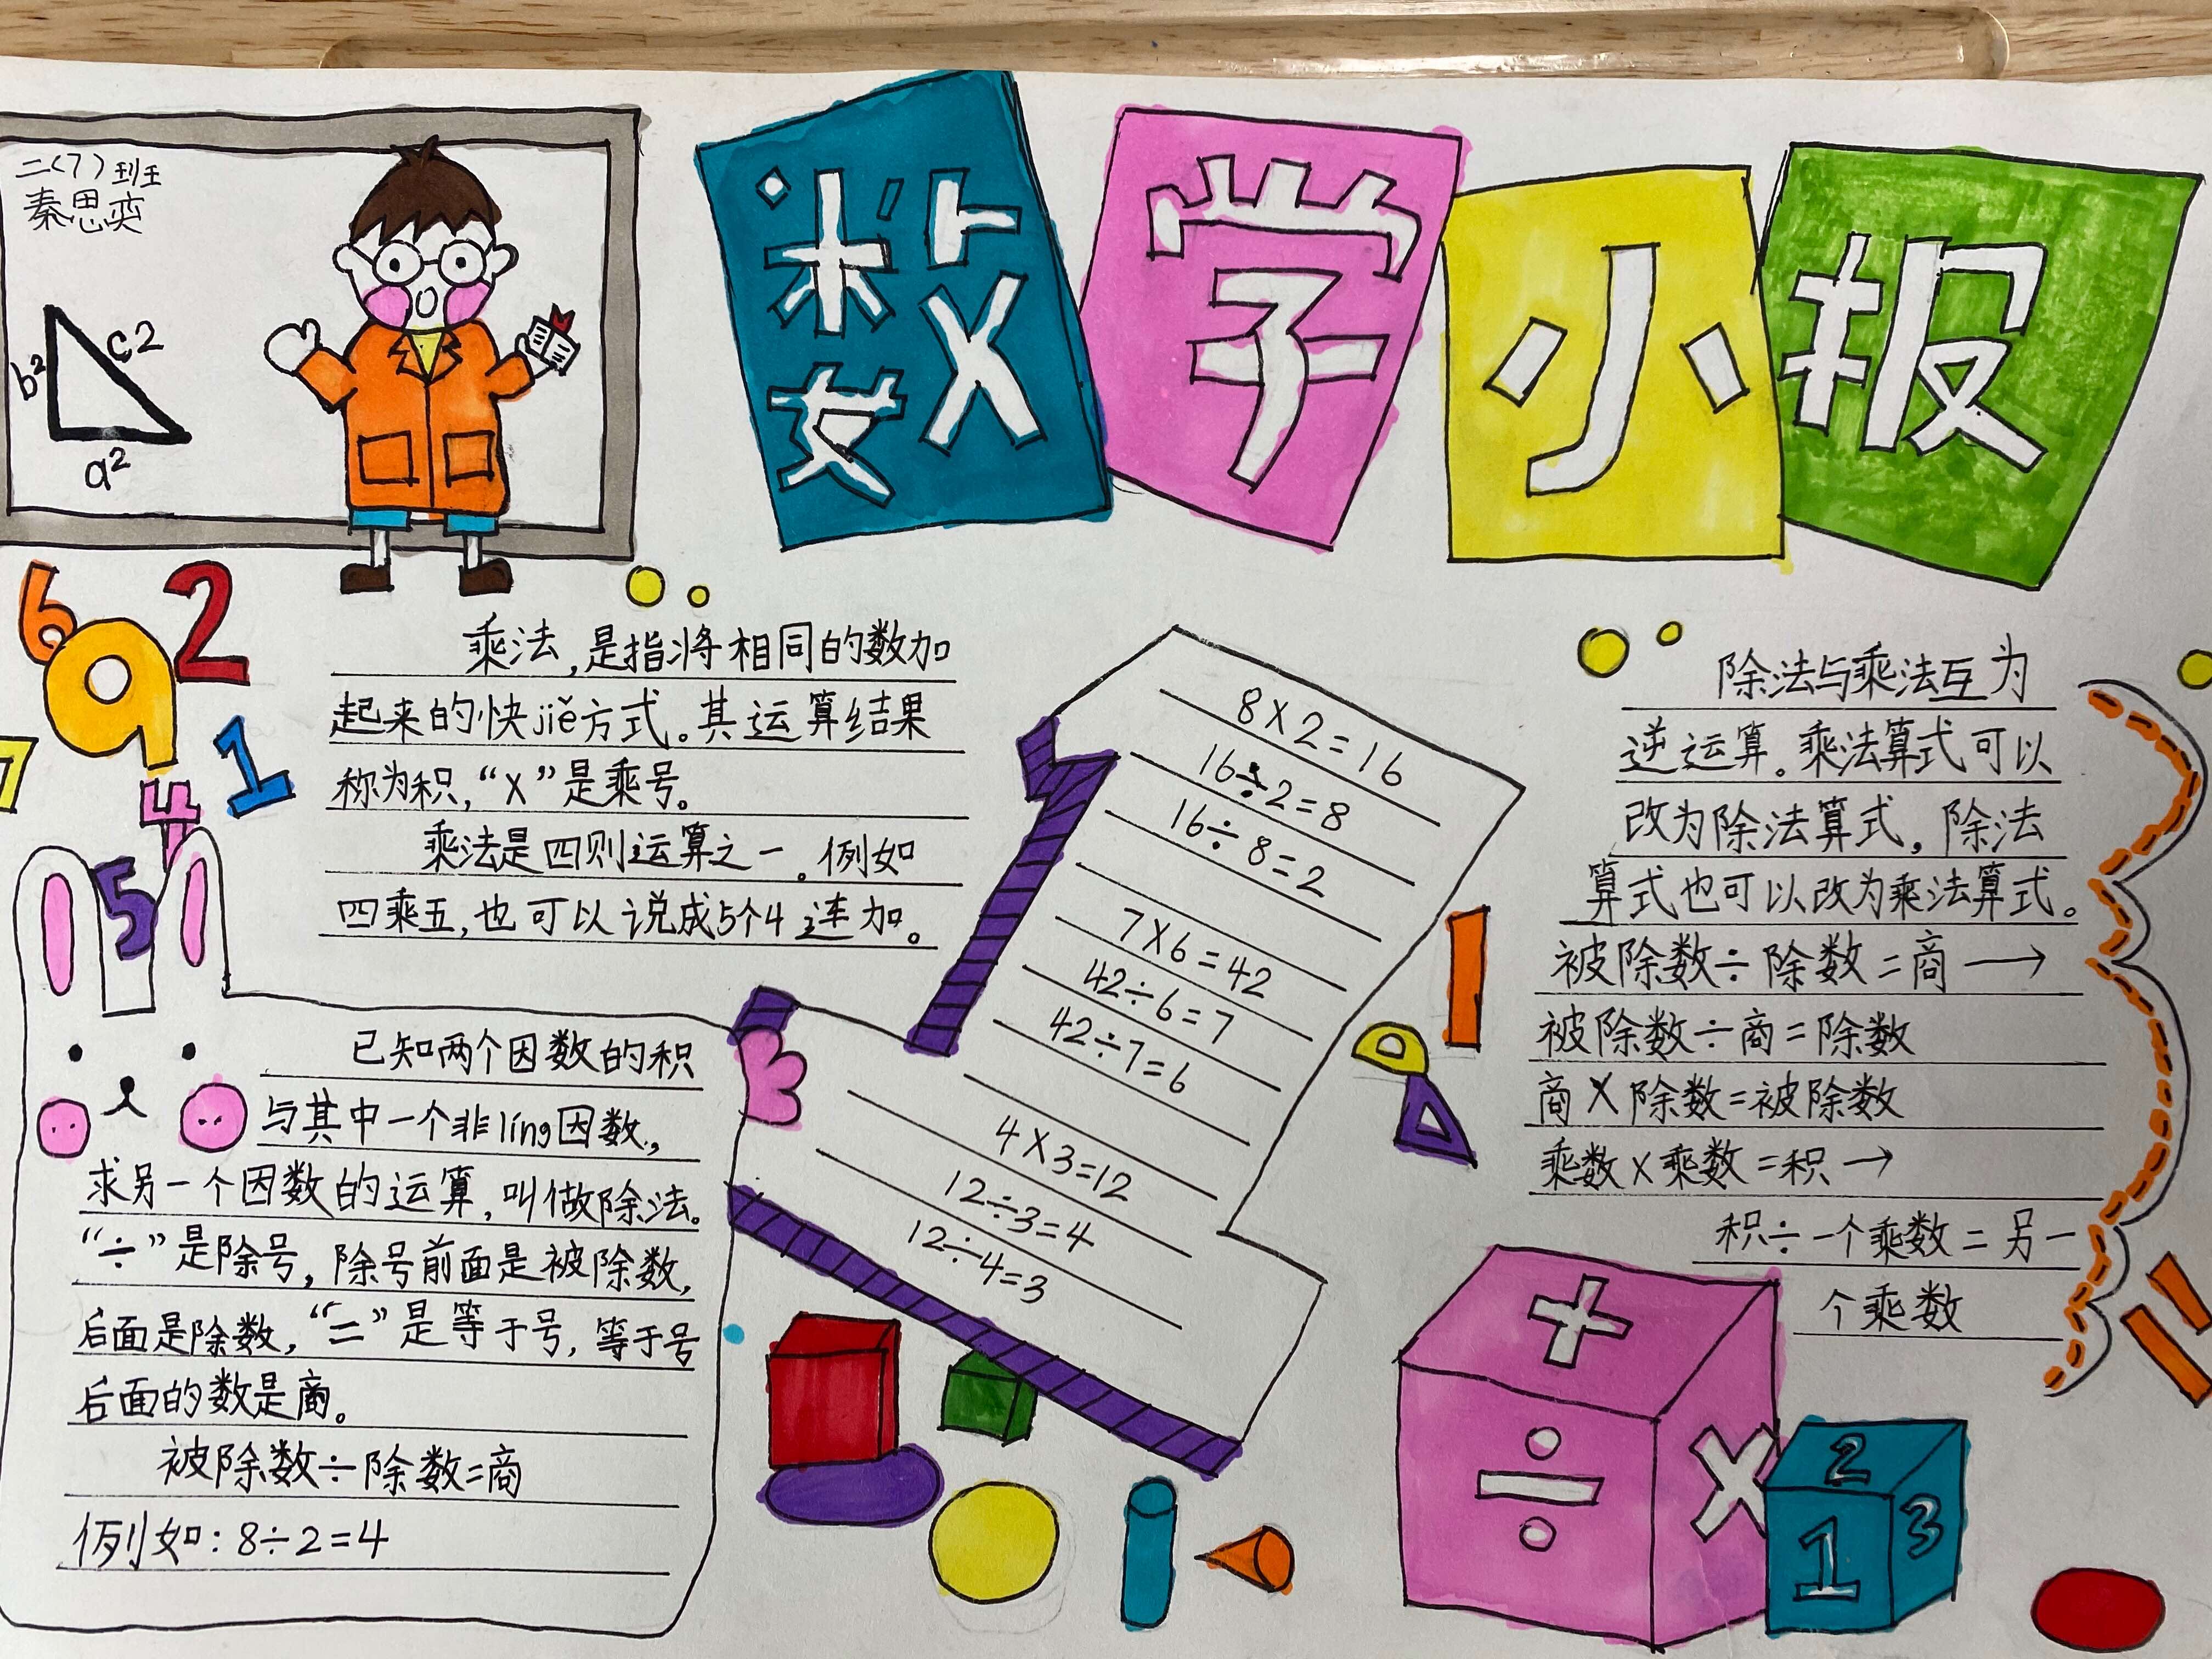 数学小报
二(7)班
秦思奕
b²
c2
a²
6
9
2
7
1
4
5
乘法,是指将相同的数加
起来的快jiě方式。其运算结果
称为积,“X”是乘号。
乘法是四则运算之一。例如
四乘五,也可以说成5个4连加。
已知两个因数的积
与其中一个非líng因数,
求另一个因数的运算,叫做除法。
“÷”是除号,除号前面是被除数,
后面是除数,“=”是等于号,等于号
后面的数是商。
被除数÷除数=商
例如:8÷2=4
8X2=16
16÷2=8
16÷8=2
7X6=42
42÷6=7
42÷7=6
4X3=12
12÷3=4
12÷4=3
除法与乘法互为
逆运算。乘法算式可以
改为除法算式,除法
算式也可以改为乘法算式。
被除数÷除数=商→
被除数÷商=除数
商X除数=被除数
乘数X乘数=积→
积÷一个乘数=另一
个乘数
+
÷
X
2
1
3